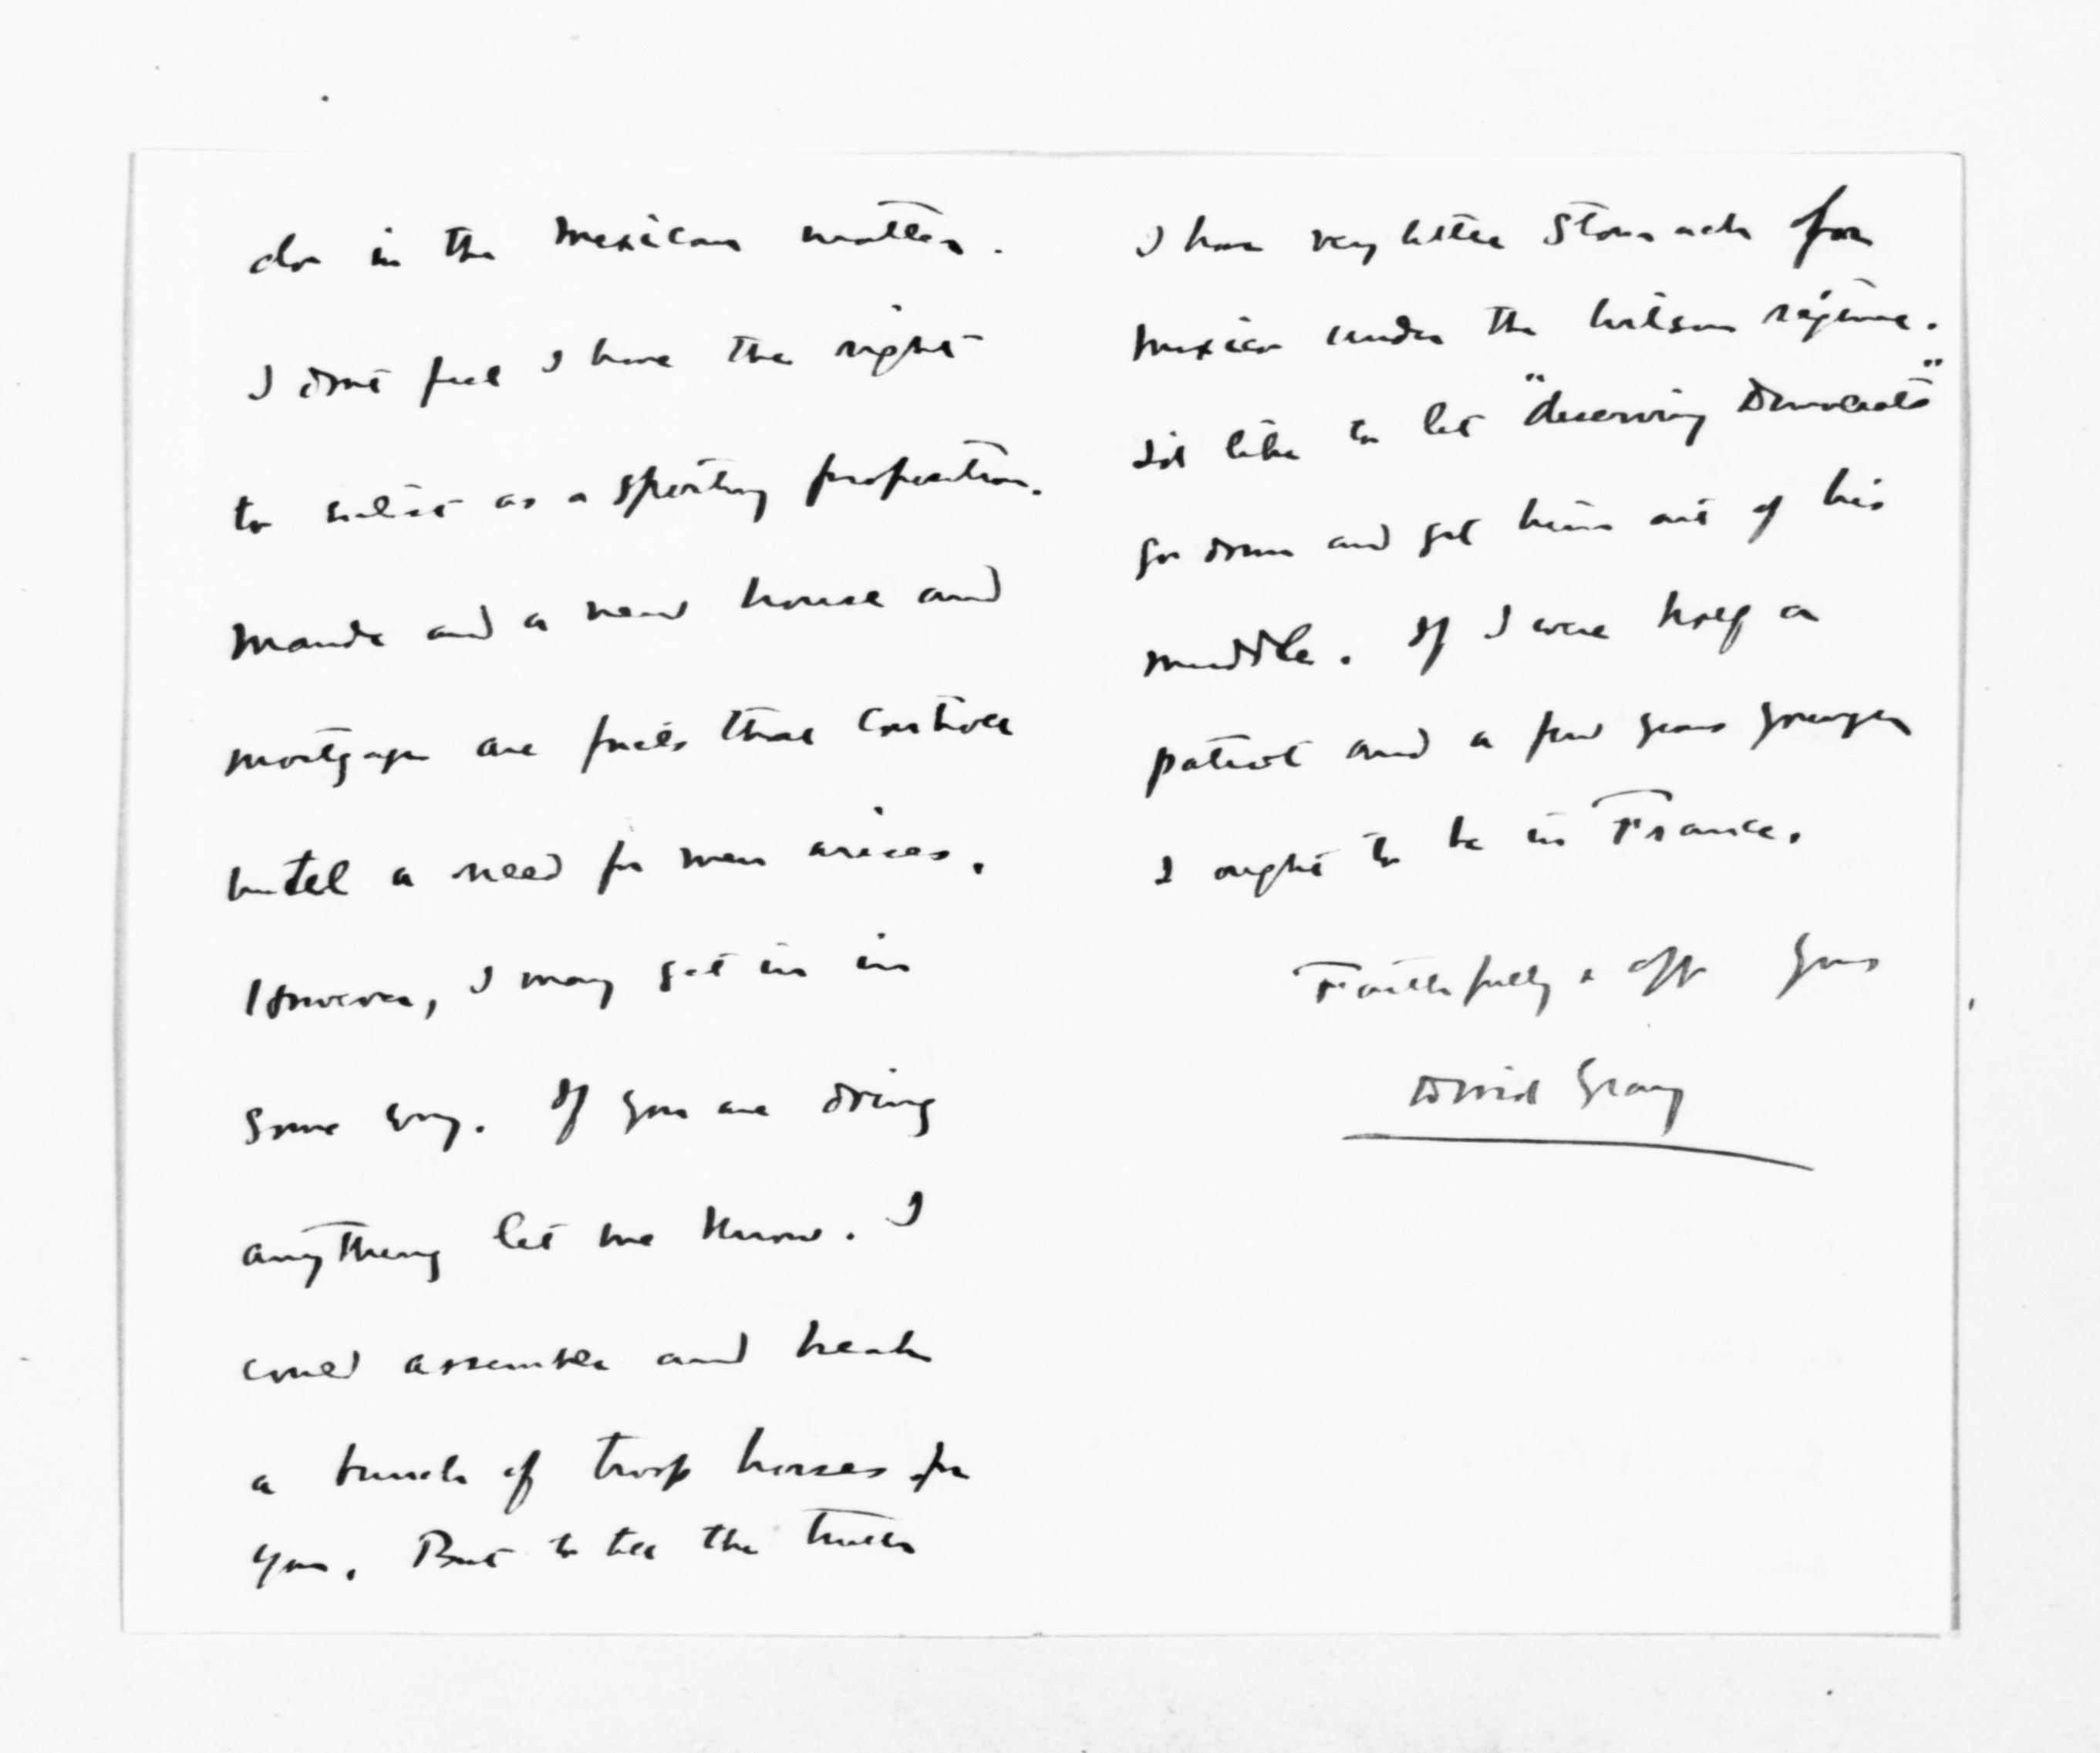 do in the Mexican matter.
I dont feel I have the right
to enlist as a sporting proposition.
Maude and a new house and
mortgage are facts that control
until a need for men arises.
However, I may get in in
some way. If you are doing
anything let me know. I
could assemble and break
a bunch of troop horses for
you. But to tell the truth
I have very little stomach for
Mexico under the Wilson régime.
I'd like to let "deserving Democrats"
go down and get him out of his
muddle. If I were half a
patriot and a few years younger
I ought to be in France.
Faithfully & aff yours
David Gray